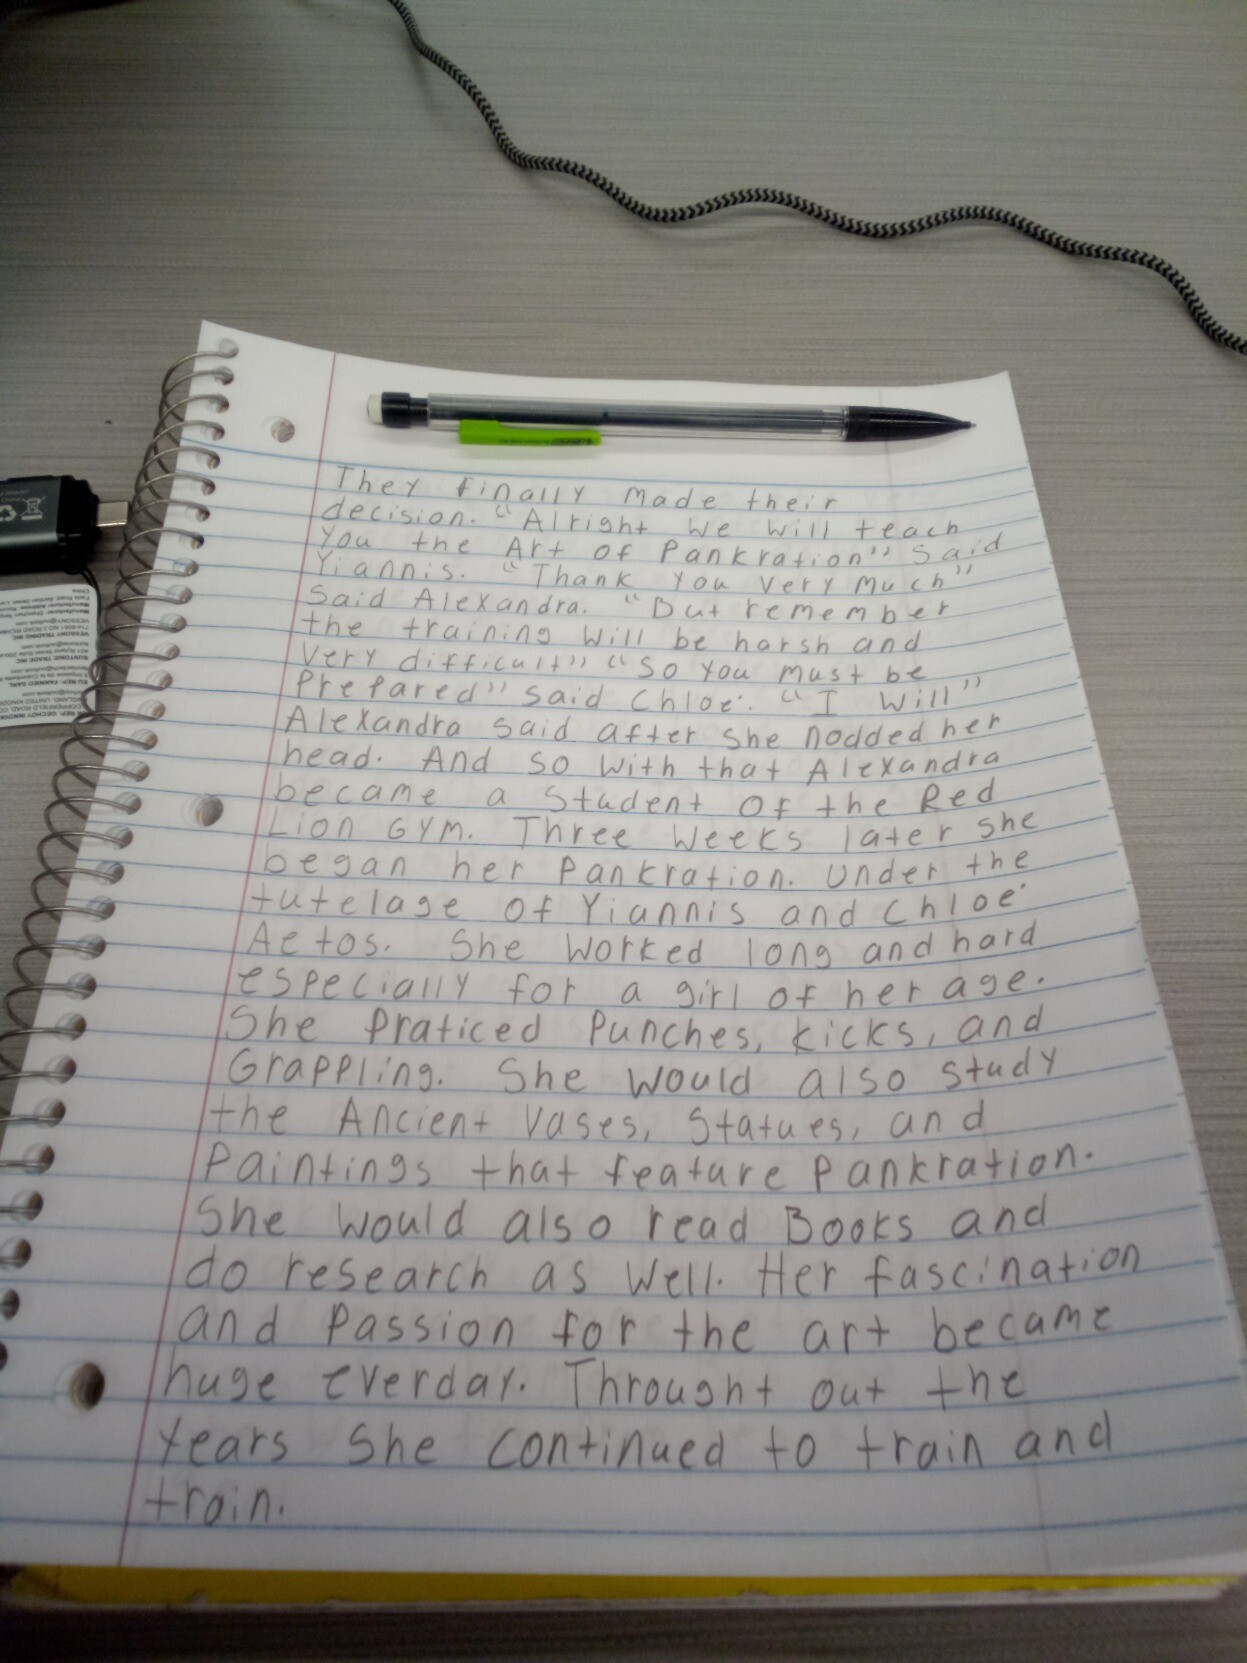 They finally made their
decision. "Alright we will teach
you the Art of Pankration" said
Yiannis. "Thank you very much"
said Alexandra. "But remember
the training will be harsh and
very difficult" "so you must be
Prepared" said Chloe. "I will"
Alexandra said after she nodded her
head. And so with that Alexandra
became a student of the Red
Lion Gym. Three weeks later she
began her Pankration. Under the
tutelage of Yiannis and Chloe
Aetos. She worked long and hard
especially for a girl of her age.
She praticed Punches, kicks, and
Grappling. She would also study
the Ancient vases, statues, and
Paintings that feature Pankration.
She would also read Books and
do research as well. Her fascination
and Passion for the art became
huge everday. Throught out the
years she continued to train and
train.